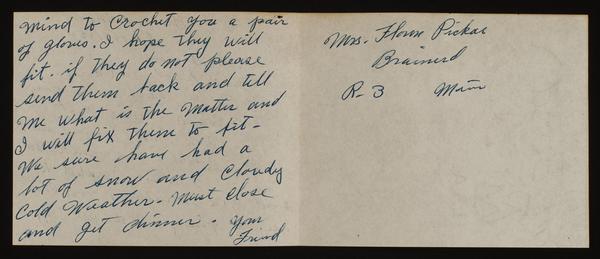 Mind to Crochet you a pair
of gloves. I hope they will
fit. if they do not please
send them back and tell
me what is the Matter and
I will fix them to fit -
We sure have had a
lot of snow and Cloudy
Cold Weather - Must close
and get dinner - Your
Friend
Mrs. Pickar
Brainerd
R-3 Minn